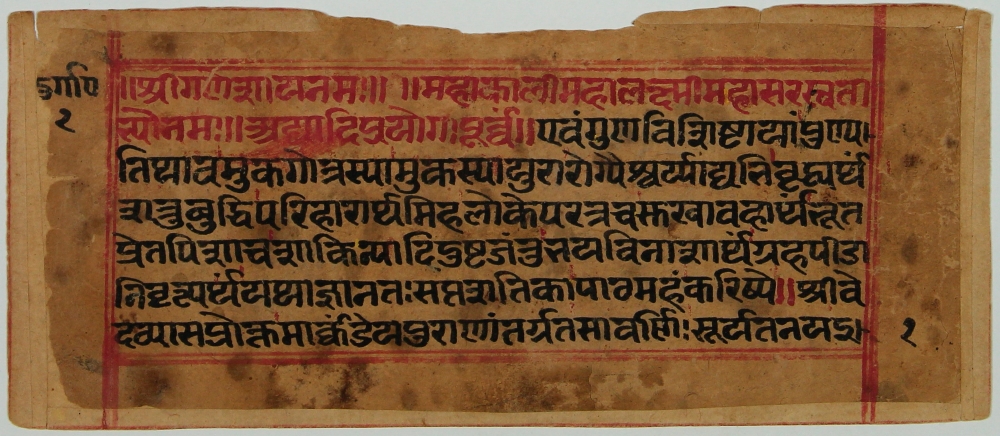 दुर्गापि
२
॥श्रीगणेशायनमः॥ ॥महाकालीमहालक्ष्मीमहासरस्वता
त्यौनमः॥अद्यादिप्रयोगःपूर्वं॥एवंगुणविशिष्टायांपुण्या
तिथावमुकगोत्रस्यामुकस्यायुरारोग्यैश्वर्य्याद्यभिवृद्ध्यर्थं
शत्रुबुद्धिपरिहारार्थमिहलोकेपरत्रचसुखावहार्थंभूत
प्रेतपिशाचशाकिन्यादिदुष्टजंतुभयविनाशार्थंग्रहपीडा
निवृत्यर्थंयथाज्ञानतःसप्तशतिकापाठमहंकरिष्ये॥श्रीवे
दव्यासप्रोक्तमार्कंडेयपुराणांतर्गतसावर्णिःसूर्यतनयइ
२